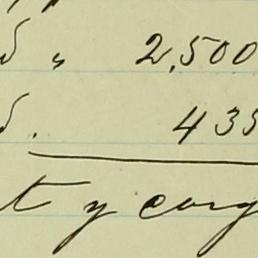 „ 2,500
435
t y carg